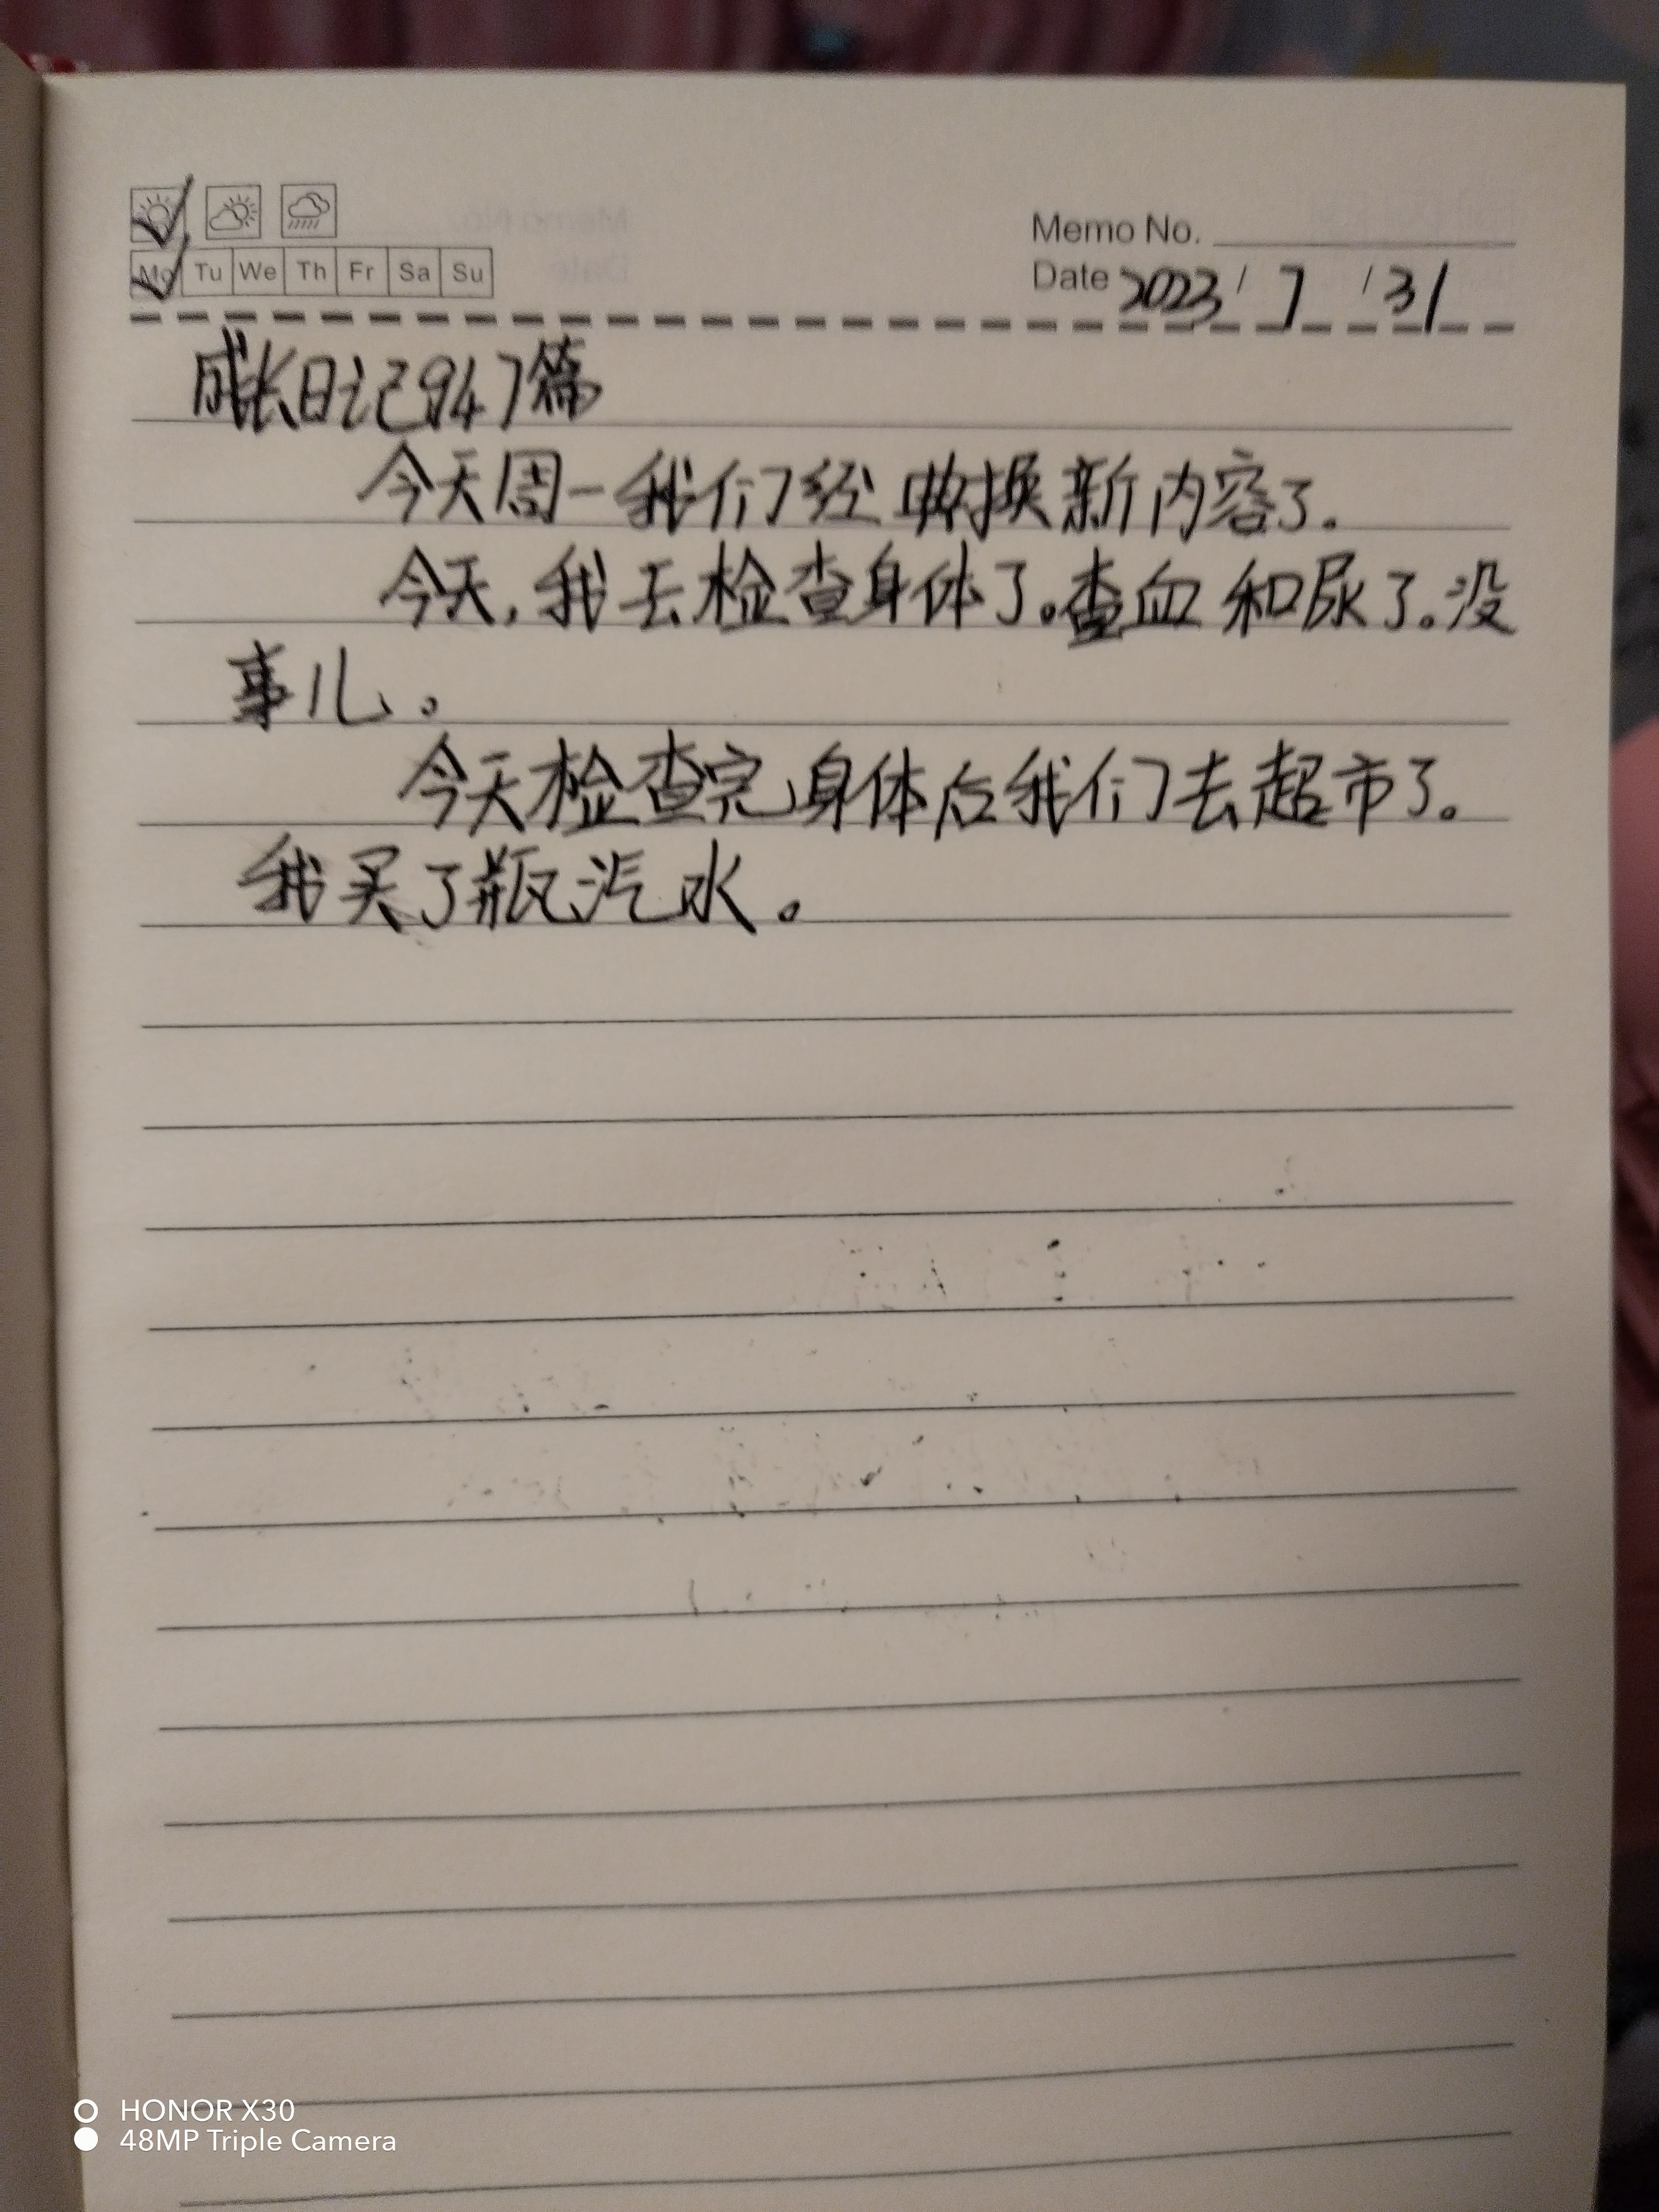 Memo No.
Mo Tu We Th Fr Sa Su
Date 2023 / 7 / 31
成长日记947篇
今天周一我们经典换新内容了.
今天,我去检查身体了。查血和尿了。没
事儿。
今天检查完身体后我们去超市了。
我买了瓶汽水。
HONOR X30
48MP Triple Camera